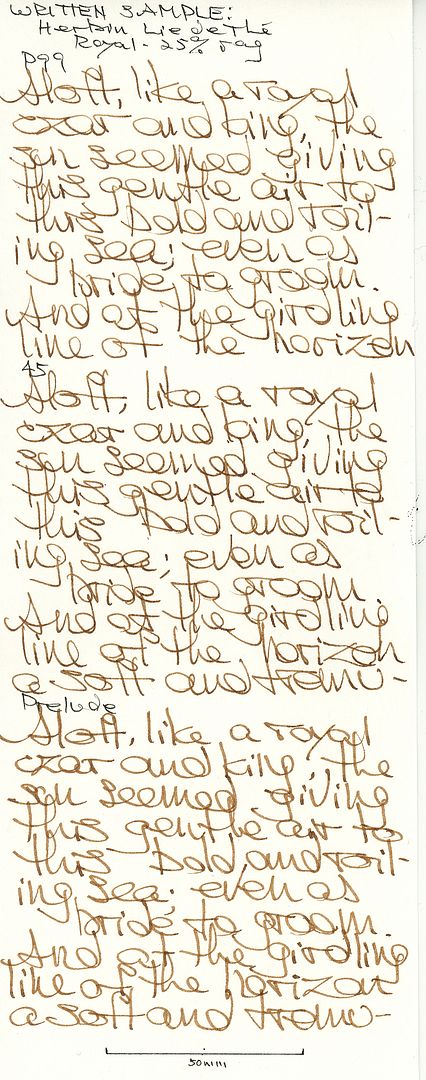 WRITTEN SAMPLE:
Herbin Lie de Thé
Royal - 25% rag
P99
Aloft, like a royal
czar and king, the
sun seemed giving
this gentle air to
this bold and roll-
ing sea; even as
bride to groom.
And at the girdling
line of the horizon
45
Aloft, like a royal
czar and king, the
sun seemed giving
this gentle air to
this bold and roll-
ing sea; even as
bride to groom
And at the girdling
line of the horizon
a soft and tremu-
Prelude
Aloft, like a royal
czar and king, the
sun seemed giving
this gentle air to
this bold and roll-
ing sea; even as
bride to groom.
And at the girdling
line of the horizon
a soft and tremu-
50mm